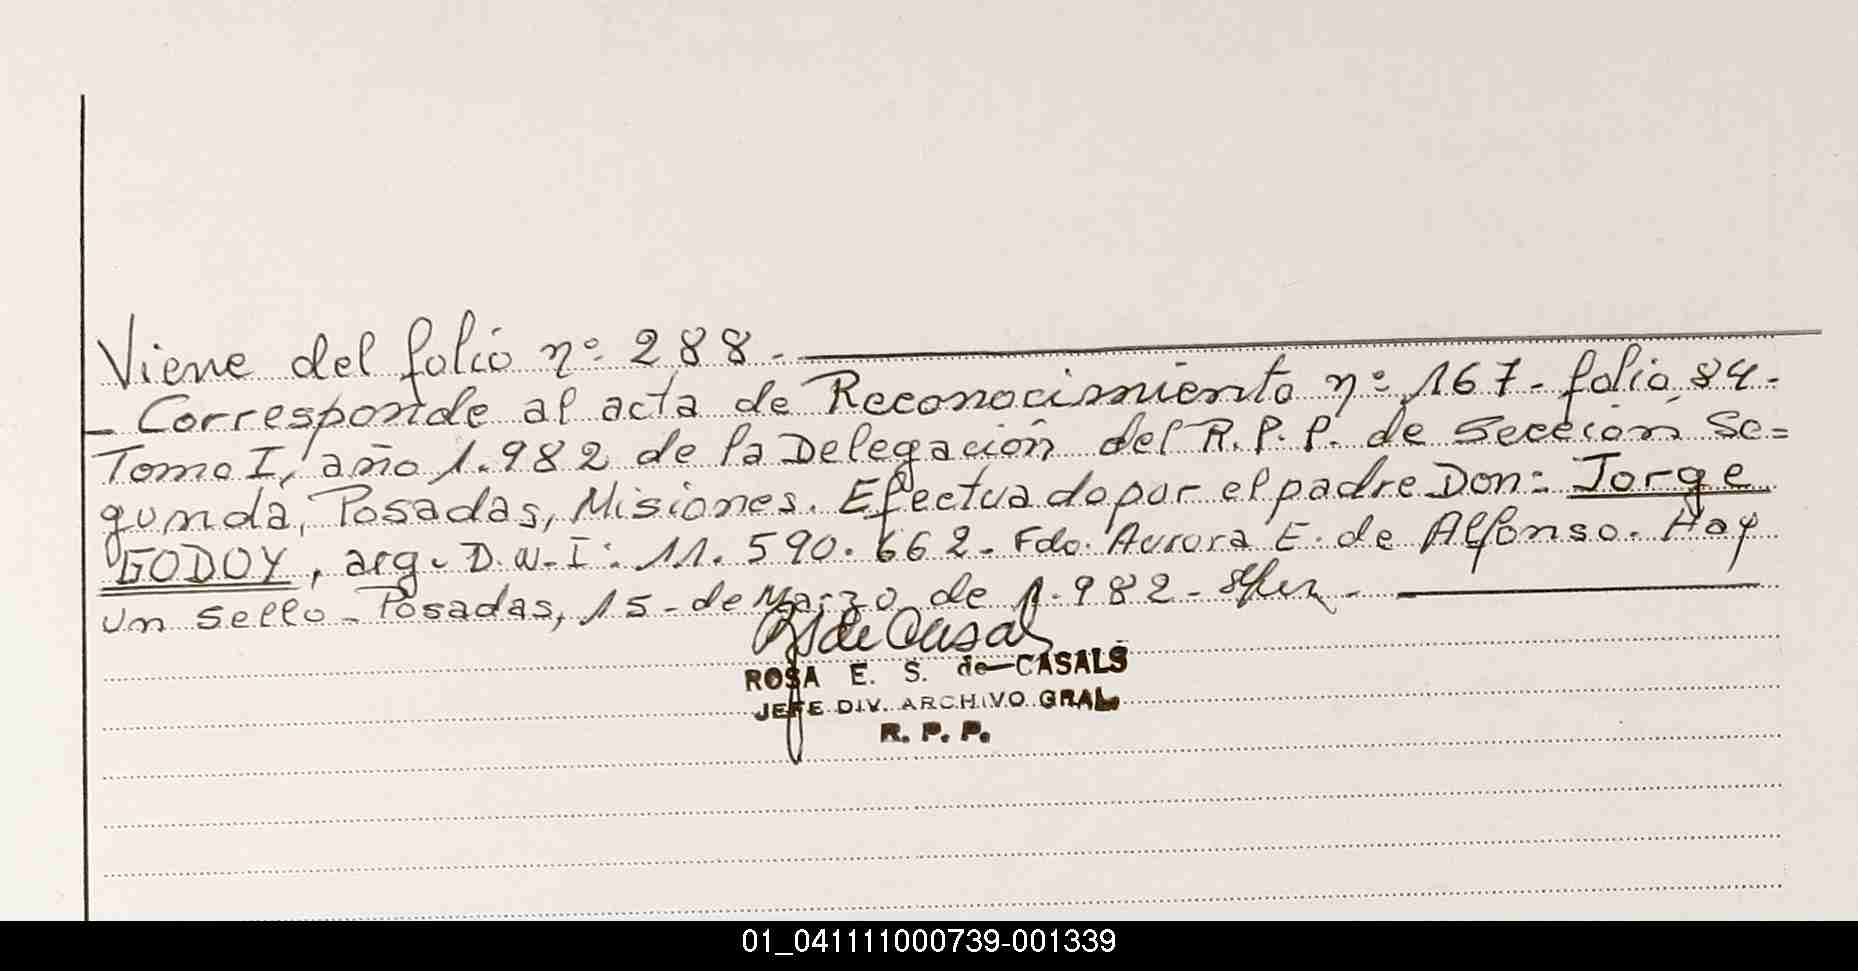 Viene del folio nº 288.
- Corresponde al acta de Reconocimiento nº 167 - folio 84 -
Tomo I, año 1.982 de la Delegación del R.P.P. de Sección Se=
gunda, Posadas, Misiones. Efectuado por el padre Don: Jorge
GODOY, arg. D.N.I: 11.590.662 - Fdo. Aurora E. de Alfonso. Hay
un sello - Posadas, 15 - de Marzo de 1.982 -
de Casals
ROSA E. S. de CASALS
JEFE DIV. ARCHIVO GRAL.
R. P. P.
01_041111000739-001339